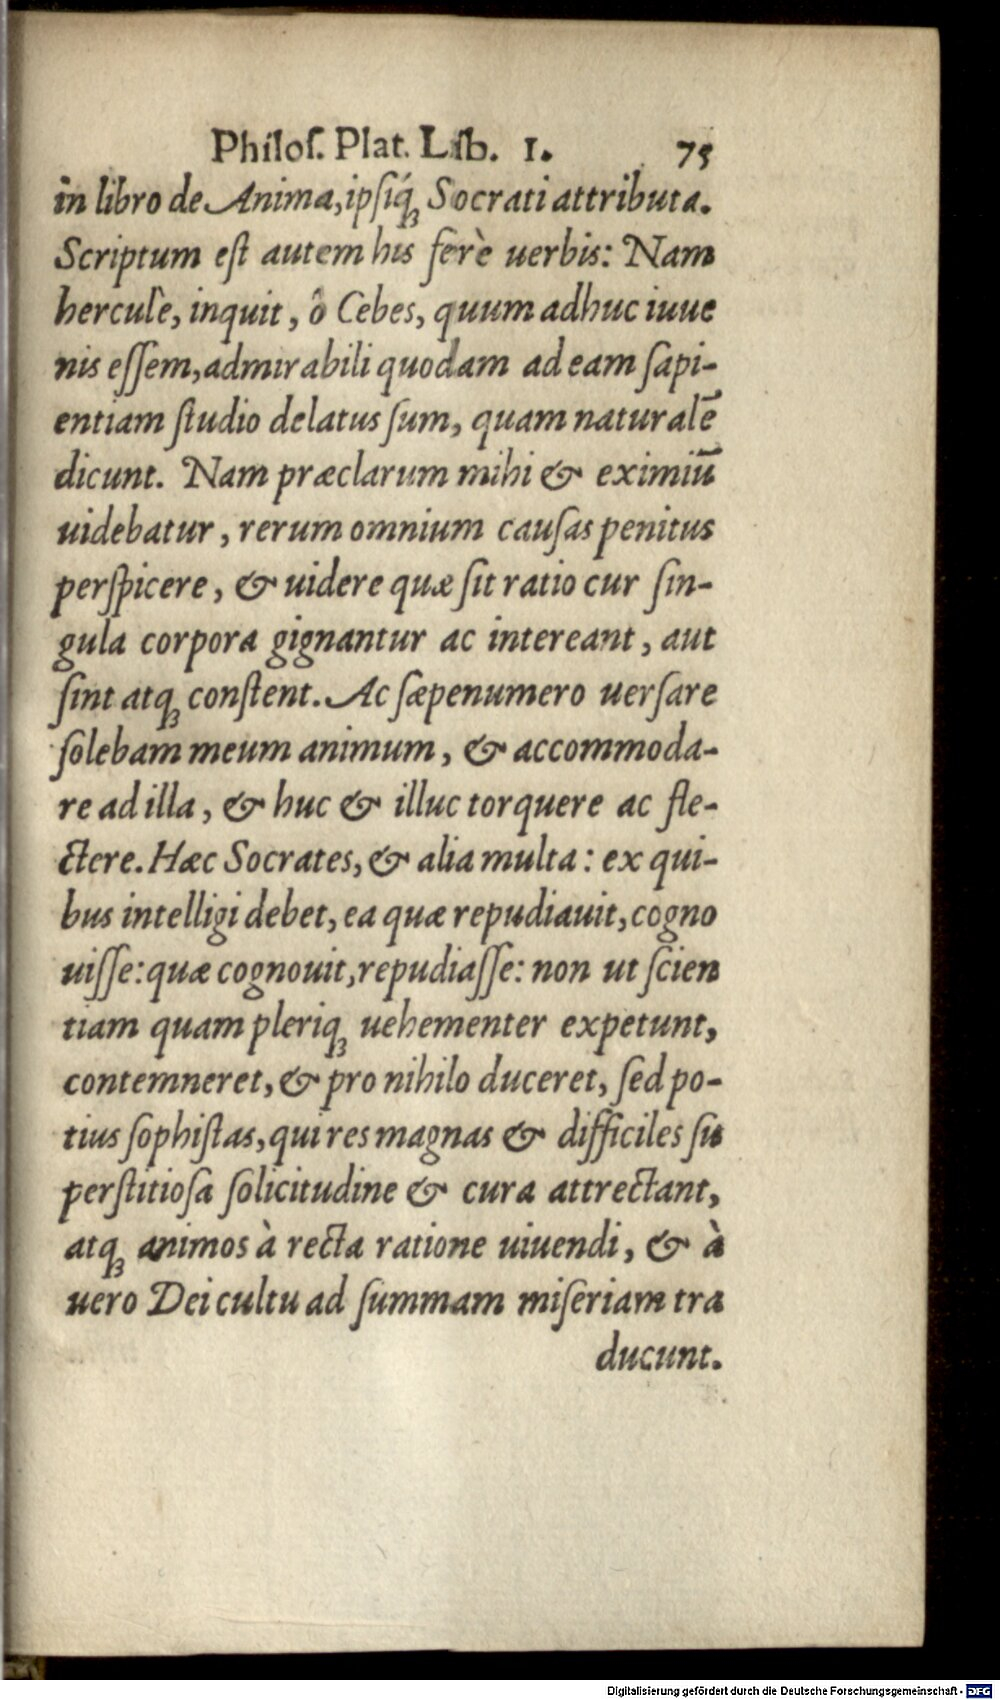 Philoſ. Plat. Lib. 1. 75
in libro de Anima, ipſiq́ꝫ Socrati attributa.
Scriptum eſt autem his ferè uerbis: Nam
hercule, inquit, ô Cebes, quum adhuc iuue
nis eſſem, admirabili quodam ad eam ſapi-
entiam ſtudio delatus ſum, quam naturalē
dicunt. Nam præclarum mihi & eximiū
uidebatur, rerum omnium cauſas penitus
perſpicere, & uidere quæ ſit ratio cur ſin-
gula corpora gignantur ac intereant, aut
ſint atqꝫ conſtent. Ac ſæpenumero uerſare
ſolebam meum animum, & accommoda-
re ad illa, & huc & illuc torquere ac fle-
ctere. Hæc Socrates, & alia multa: ex qui-
bus intelligi debet, ea quæ repudiauit, cogno
uiſſe: quæ cognouit, repudiaſſe: non ut ſcien
tiam quam pleriqꝫ uehementer expetunt,
contemneret, & pro nihilo duceret, ſed po-
tius ſophiſtas, qui res magnas & difficiles ſu
perſtitioſa ſolicitudine & cura attrectant,
atqꝫ animos à recta ratione uiuendi, & à
uero Dei cultu ad ſummam miſeriam tra
ducunt.
Digitalisierung gefördert durch die Deutsche Forschungsgemeinschaft - DFG